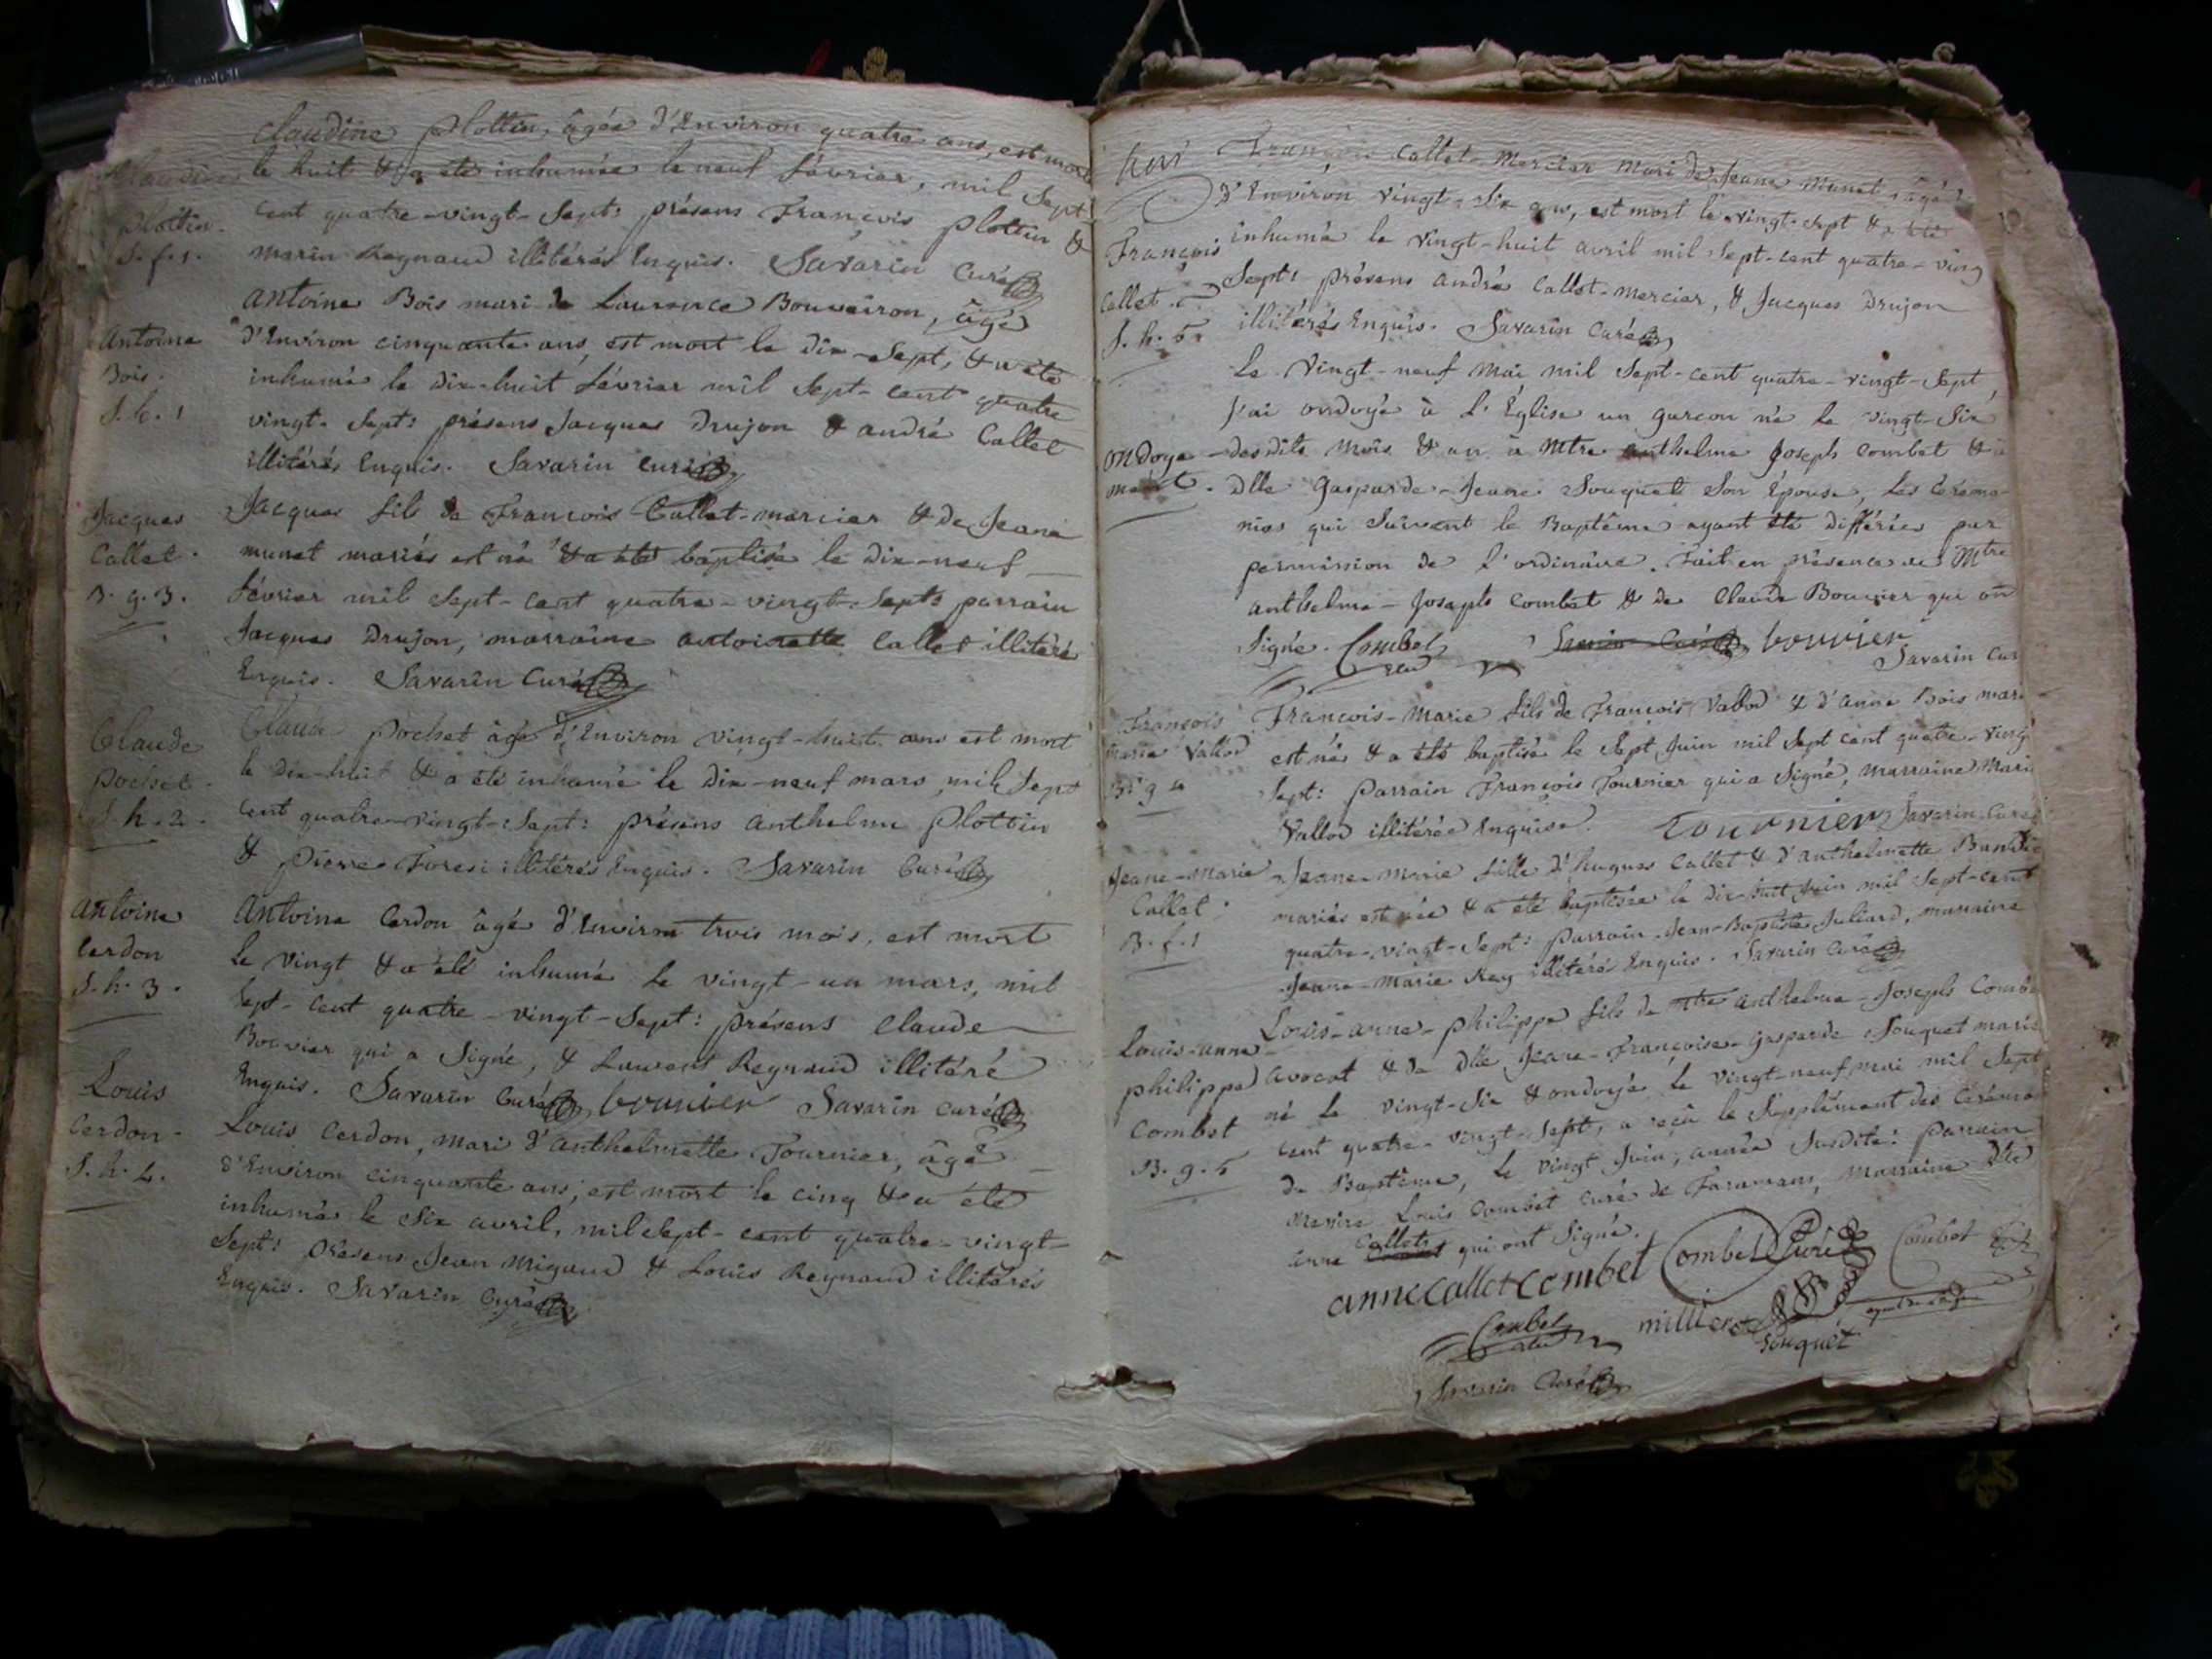 Claudine Plottin, âgée d'Environ quatre ans, est morte
Claudine
le huit & a été inhumée le neuf février, mil Sept
Plottin.
cent quatre-vingt-Sept: présens François Plottin &
S. f. 1.
marin Regnaud illitérés Enquis. Savarin Curé
antoine Bois mari de Laurence Bouveiron, âgé
antoine
d'Environ cinquante ans, est mort le dix-Sept, & a été
Bois.
inhumé le dix-huit février mil Sept-cent quatre
S. h. 1
vingt-Sept: présens Jacques Drujon & andré Callet
illitérés Enquis. Savarin curé
Jacques
Jacques fils de François Callet-mercier & de Jeane
Callet.
munet mariés est né & a été baptisé le dix-neuf
B. g. 3.
février mil Sept-cent quatre-vingt-Sept: parrain
Jacques Drujon, marraine antoinette Callet illitéré
Enquis. Savarin Curé
Claude
Claude Pochet âgé d'Environ vingt-huit ans est mort
Pochet.
le dix-huit & a été inhumé le dix-neuf mars, mil Sept
S. h. 2.
cent quatre-vingt-Sept: présens anthelme Plottin
& Pierre Forest illitérés Enquis. Savarin Curé
antoine
antoine Cerdon âgé d'Environ trois mois, est mort
Cerdon
le vingt & a été inhumé le vingt-un mars, mil
S. h. 3.
Sept-cent quatre-vingt-Sept: présens Claude
Bouvier qui a Signé, & Laurent Regnaud illitéré
Enquis. Savarin Curé bouvier Savarin curé
Louis
Louis Cerdon, mari d'anthelmette Fournier, âgé
Cerdon.
d'Environ cinquante ans, est mort le cinq & a été
S. h. 4.
inhumé le Six avril, mil Sept-cent quatre-vingt-
Sept: présens Jean Migaud & Louis Regnaud illitérés
Enquis. Savarin Curé
François Callet-Mercier mari de Jeane Munet, âgé
d'Environ vingt-Six ans, est mort le vingt-Sept & a été
François
inhumé le vingt-huit avril mil Sept-cent quatre-ving
Callet.
Sept: présens andré Callet-mercier, & Jacques Drujon
S. h. 5.
illitérés Enquis. Savarin Curé
Le vingt-neuf Mai mil Sept-cent quatre-vingt-Sept,
j'ai ondoyé à l'Église un garcon né le vingt-Six
ondoye
desdits mois & an à Mtre anthelme Joseph Combet & à
ment.
Dlle Gasparde-Jeane Souquet Son Épouse, les Cérémo-
nies qui Suivent le Baptême ayant été différées par
permission de l'ordinaire. Fait en présence de Mtre
anthelme-Joseph Combet & de Claude Bouvier qui on
Signé. Combet Savarin Curé bouvier
Savarin Cur
François
François-Marie fils de François Vallod & d'anne Bois mari
marie Vallod
est né & a été baptisé le Sept Juin mil Sept cent quatre-ving
B. g 4
Sept: Parrain François Fournier qui a Signé, marraine Mari
Vallod illitérée Enquise. Tournier Savarin Curé
Jeane-marie
Jeane-marie fille d'hugues Callet & d'anthelmette
Callet.
mariés est née & a été baptisée le dix-huit Juin mil Sept-cent
B. f. 1
quatre-vingt-Sept: Parrain Jean-Baptiste Juliard, marraine
Jeane-Marie Rey illitérés Enquis. Savarin Curé
Louis-anne-Philippe fils de Mtre anthelme-Joseph Combe
Louis-anne-
avocat & de Dlle Jeane-Françoise-Gasparde Souquet marié
philippe
né le vingt-Six & ondoyé le vingt-neuf mai mil Sept
Combet
cent quatre-vingt-Sept, a reçu le Supplément des Cérémo
B. g. 5
du Baptême, le vingt Juin, année Susdite: Parrain
Messire Louis Combet curé de Faramans, marraine Dlle
anne Callet qui ont Signé.
anne callet combet Combet Curé Combet
Combet millieret
Souquet
Savarin Curé